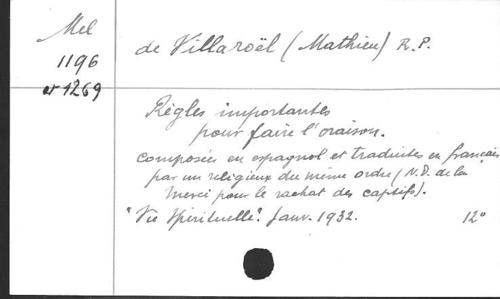 Mel
1196
et 1269
de Villaroël (Mathieu) R.P.
Règles importantes
pour faire l'oraison.
composées en espagnol et traduites en français
par un religieux du même ordre (N.D. de la
Merci pour le rachat des captifs).
"Vie Spirituelle". Janv. 1932. 12°